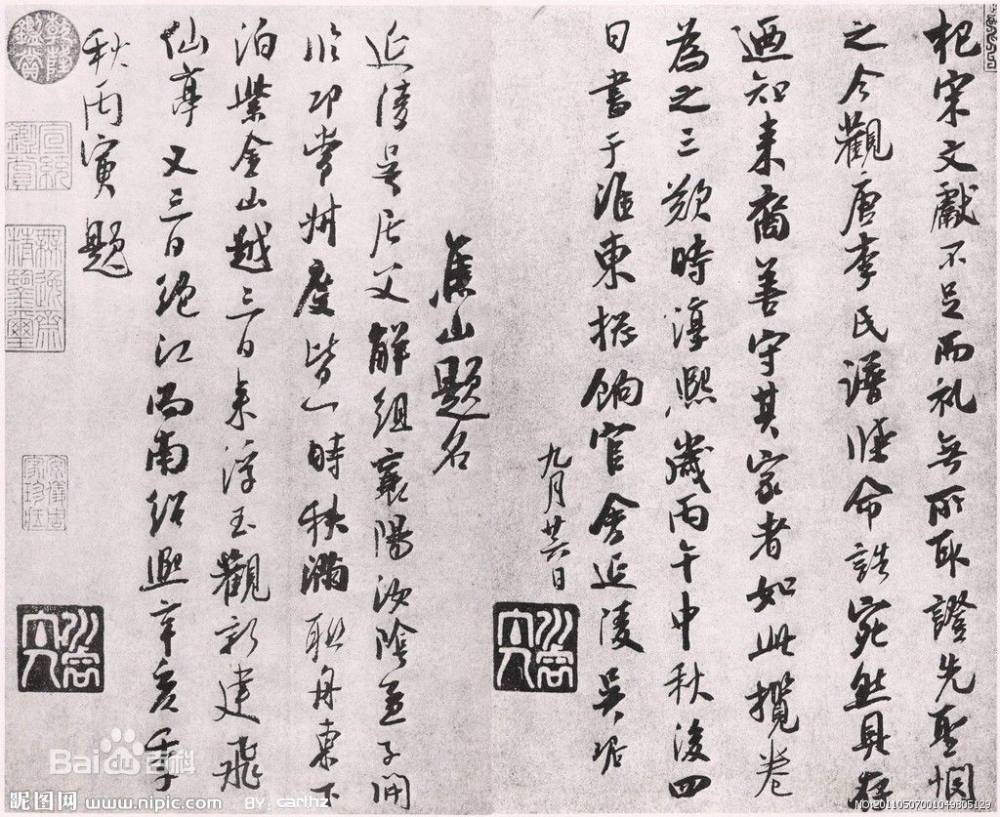 杞宋文獻不足而礼無所取證先聖憫
之今觀唐李氏譜牒命誥宛然具存
迺知来裔善守其家者如此攬卷
為之三歎時淳熙歲丙午中秋後四
日書于淮東揔餉官舍延陵吴琚
九月廿六日
焦山題名
延陵吴居父解組襄陽汝陰孟子開
臨邛常卅度皆一時秩滿聯舟東下
泊紫金山越三日来浮玉觀新建飛
仙亭又三日絕江而南紹熙辛亥季
秋丙寅題
Bai百科
昵图网 www.nipic.com BY: carlhz
NO:20110507001049805129